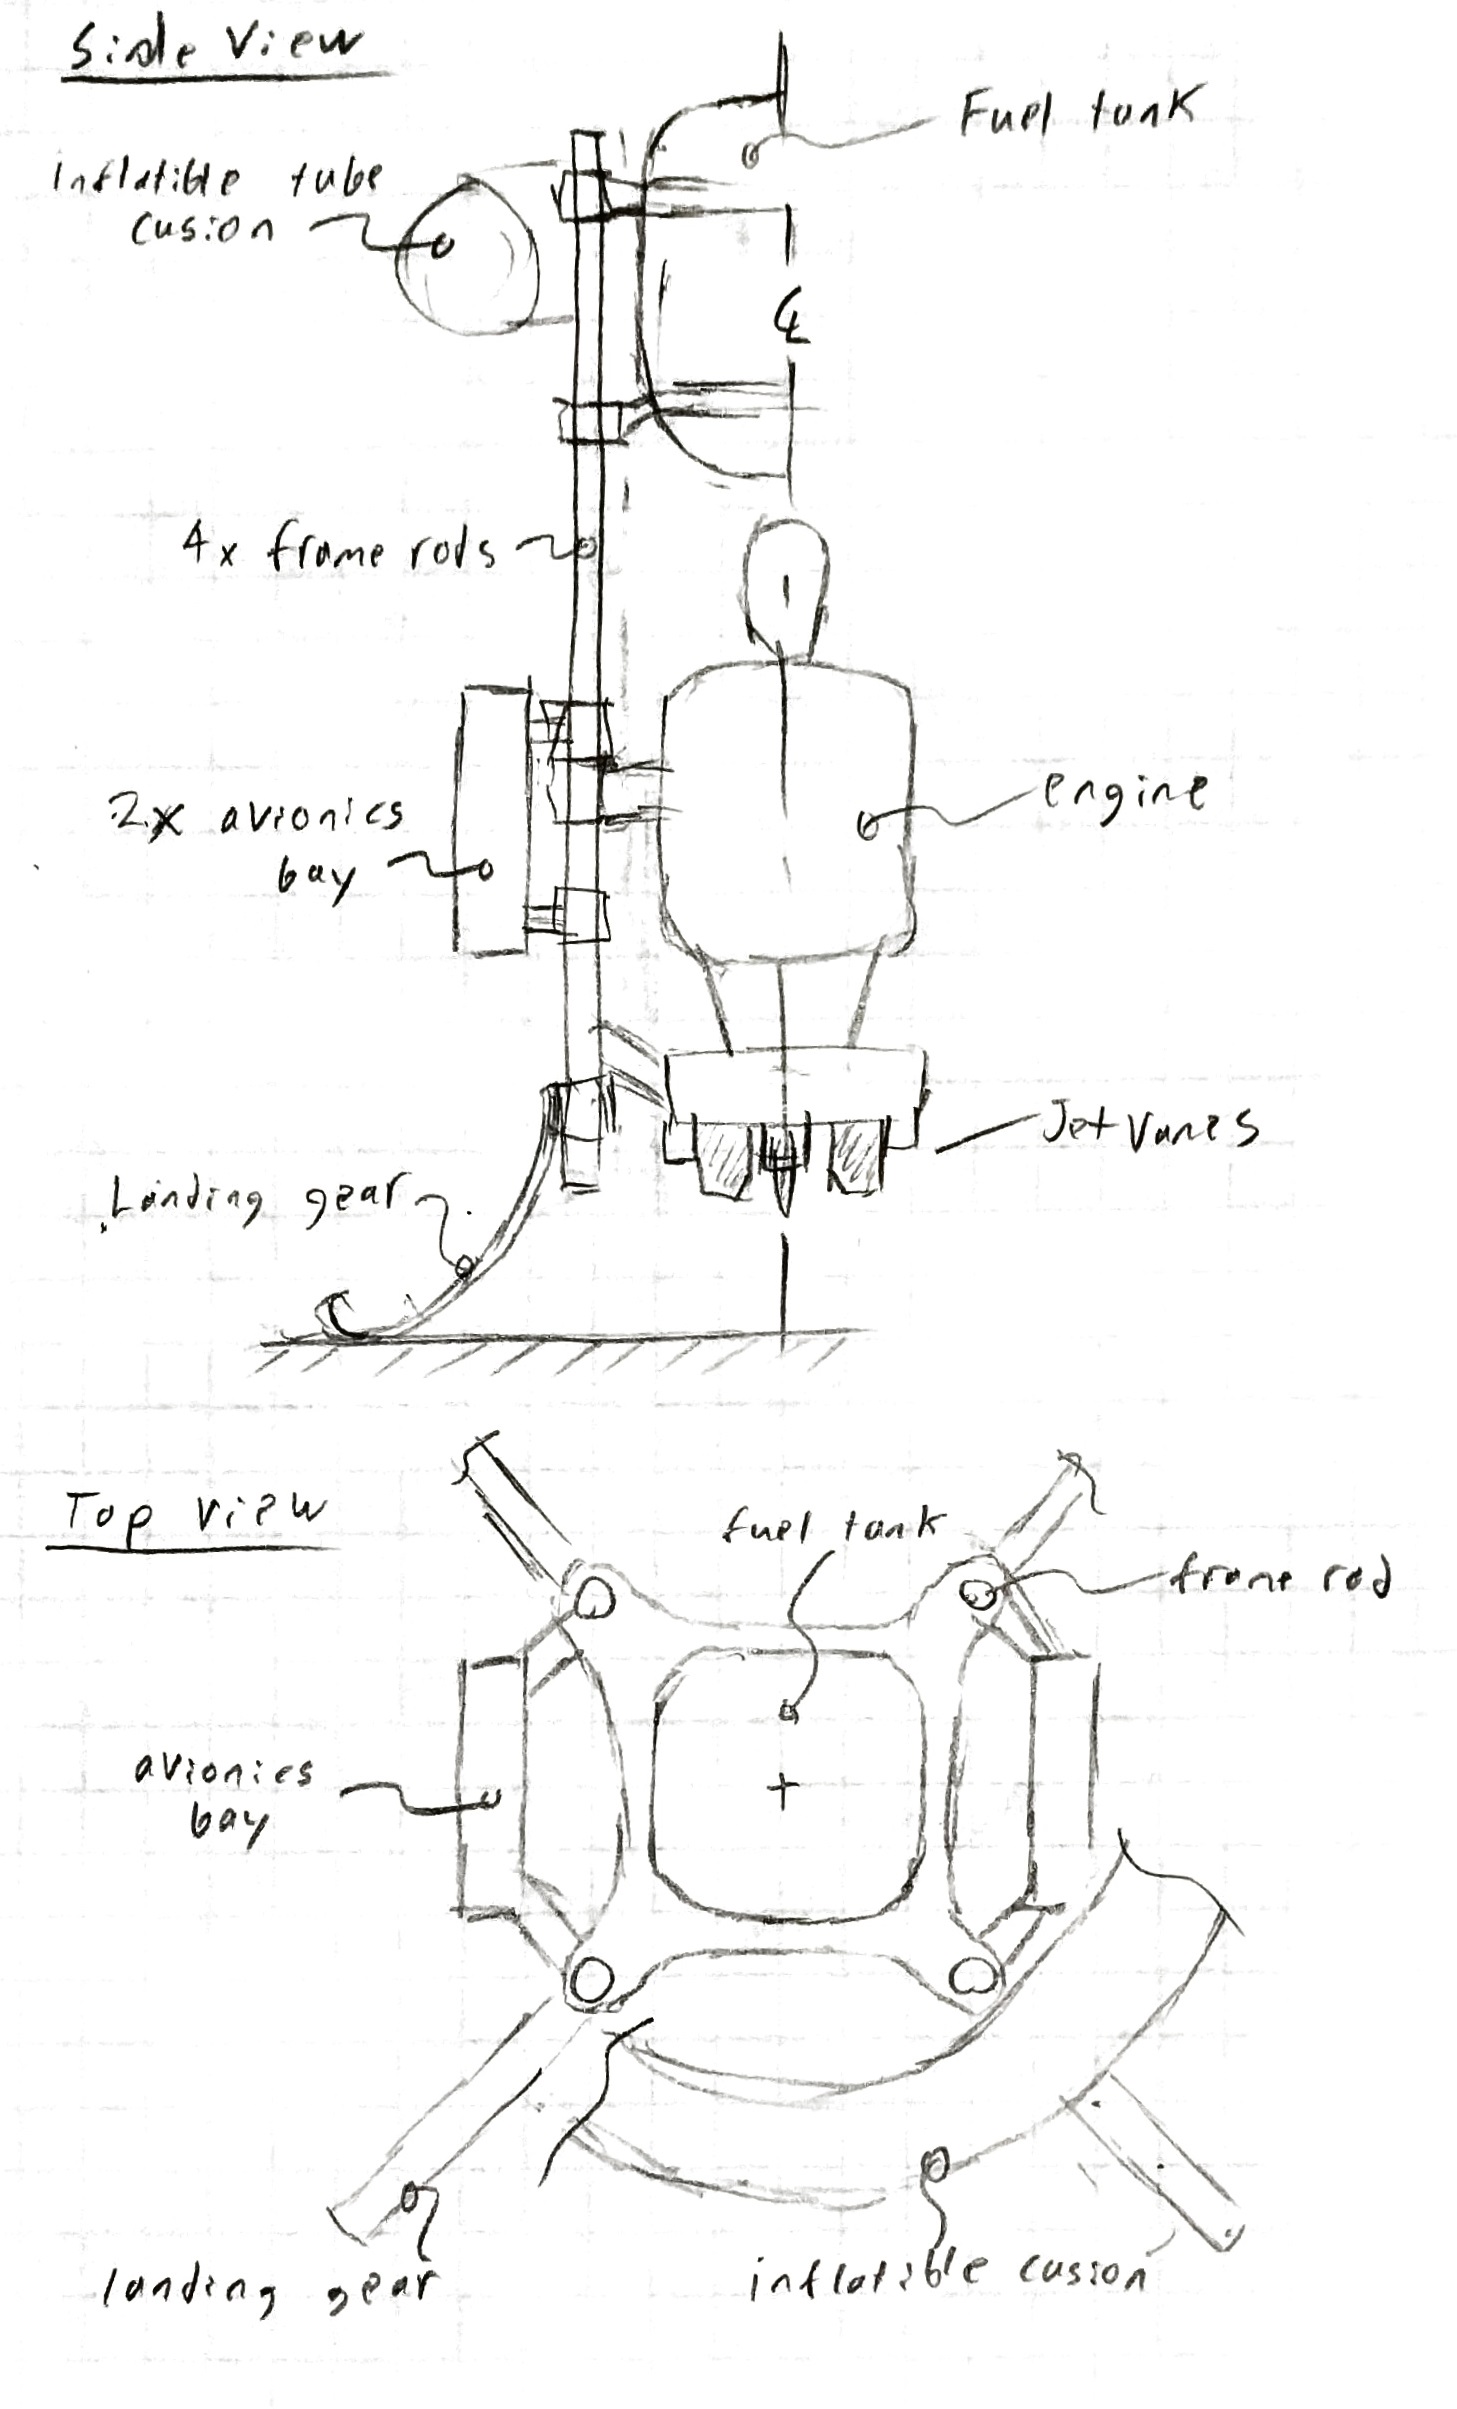 Side View
Fuel tank
Inflatible tube
cusion
℄
4x frame rods
2x avionics
bay
engine
Jet Vanes
Landing gear
Top view
fuel tank
frame rod
avionics
bay
landing gear
inflatible cusion